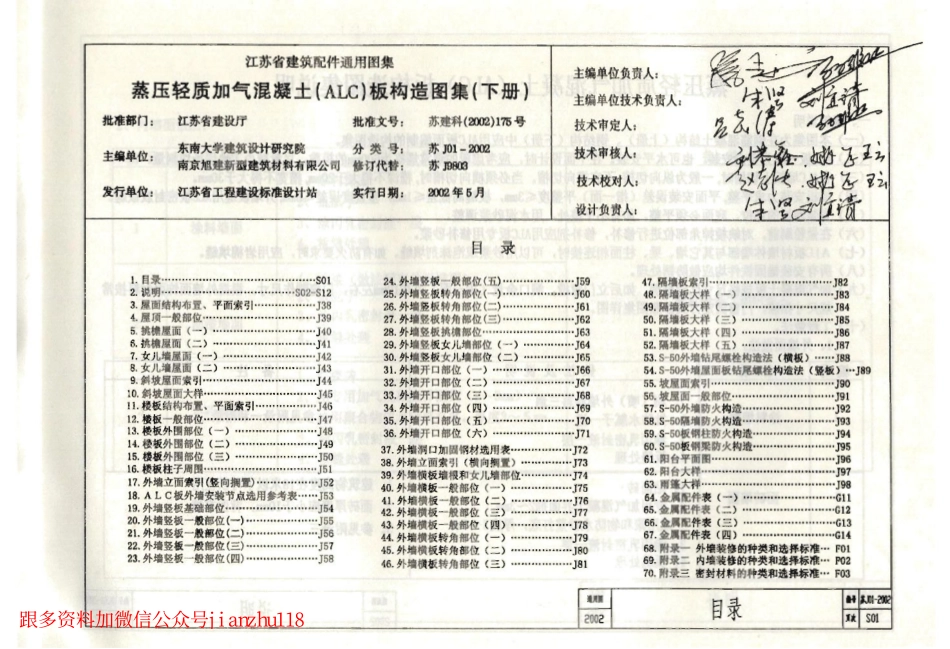 江苏省建筑配件通用图集
蒸压轻质加气混凝土(ALC)板构造图集(下册)
批准部门: 江苏省建设厅 批准文号: 苏建科(2002)175号
主编单位: 东南大学建筑设计研究院 分类号: 苏J01-2002
南京旭建新型建筑材料有限公司 修订代替: 苏J9803
发行单位: 江苏省工程建设标准设计站 实行日期: 2002年5月
主编单位负责人:
主编单位技术负责人:
技术审定人:
技术审核人:
技术校对人:
设计负责人:
目录
1. 目录 S01
2. 说明 S02-S12
3. 屋面结构布置、平面索引 J38
4. 屋顶一般部位 J39
5. 挑檐屋面(一) J40
6. 挑檐屋面(二) J41
7. 女儿墙屋面(一) J42
8. 女儿墙屋面(二) J43
9. 斜坡屋面索引 J44
10. 斜坡屋面大样 J45
11. 楼板结构布置、平面索引 J46
12. 楼板一般部位 J47
13. 楼板外围部位(一) J48
14. 楼板外围部位(二) J49
15. 楼板外围部位(三) J50
16. 楼板柱子周围 J51
17. 外墙立面索引(竖向搁置) J52
18. ALC板外墙安装节点选用参考表 J53
19. 外墙竖板基础部位 J54
20. 外墙竖板一般部位(一) J55
21. 外墙竖板一般部位(二) J56
22. 外墙竖板一般部位(三) J57
23. 外墙竖板一般部位(四) J58
24. 外墙竖板一般部位(五) J59
25. 外墙竖板转角部位(一) J60
26. 外墙竖板转角部位(二) J61
27. 外墙竖板转角部位(三) J62
28. 外墙竖板挑檐部位 J63
29. 外墙竖板女儿墙部位(一) J64
30. 外墙竖板女儿墙部位(二) J65
31. 外墙开口部位(一) J66
32. 外墙开口部位(二) J67
33. 外墙开口部位(三) J68
34. 外墙开口部位(四) J69
35. 外墙开口部位(五) J70
36. 外墙开口部位(六) J71
37. 外墙洞口加固钢材选用表 J72
38. 外墙立面索引(横向搁置) J73
39. 外墙横板墙根和女儿墙部位 J74
40. 外墙横板一般部位(一) J75
41. 外墙横板一般部位(二) J76
42. 外墙横板一般部位(三) J77
43. 外墙横板一般部位(四) J78
44. 外墙横板转角部位(一) J79
45. 外墙横板转角部位(二) J80
46. 外墙横板转角部位(三) J81
47. 隔墙板索引 J82
48. 隔墙板大样(一) J83
49. 隔墙板大样(二) J84
50. 隔墙板大样(三) J85
51. 隔墙板大样(四) J86
52. 隔墙板大样(五) J87
53. S-50外墙钻尾螺栓构造法(横板) J88
54. S-50外墙屋面板钻尾螺栓构造法(竖板) J89
55. 坡屋面索引 J90
56. 坡屋面一般部位 J91
57. S-50外墙防火构造 J92
58. S-50隔墙防火构造 J93
59. S-50板钢柱防火构造 J94
60. S-50板钢梁防火构造 J95
61. 阳台平面图 J96
62. 阳台大样 J97
63. 雨篷大样 J98
64. 金属配件表(一) G11
65. 金属配件表(二) G12
66. 金属配件表(三) G13
67. 金属配件表(四) G14
68. 附录一 外墙装修的种类和选择标准 F01
69. 附录二 内墙装修的种类和选择标准 F02
70. 附录三 密封材料的种类和选择标准 F03
通用图
2002
目录
编号 苏J01-2002
页次 S01
跟多资料加微信公众号jianzhu118